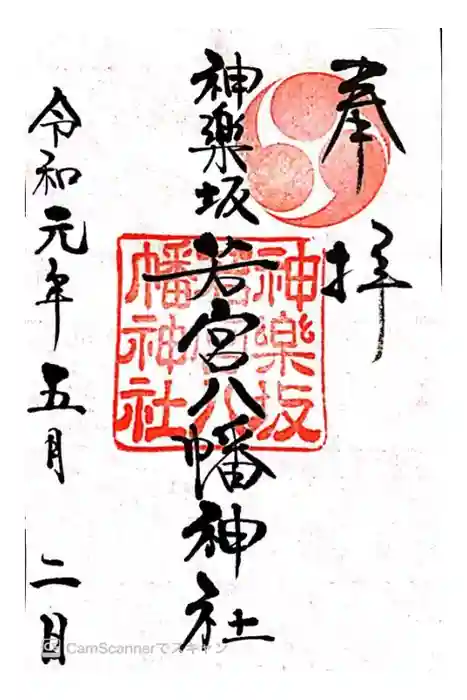 奉拝
神樂坂若宮八幡神社
神樂坂
若宮八
幡神社
令和元年五月二日
CamScannerでスキャン